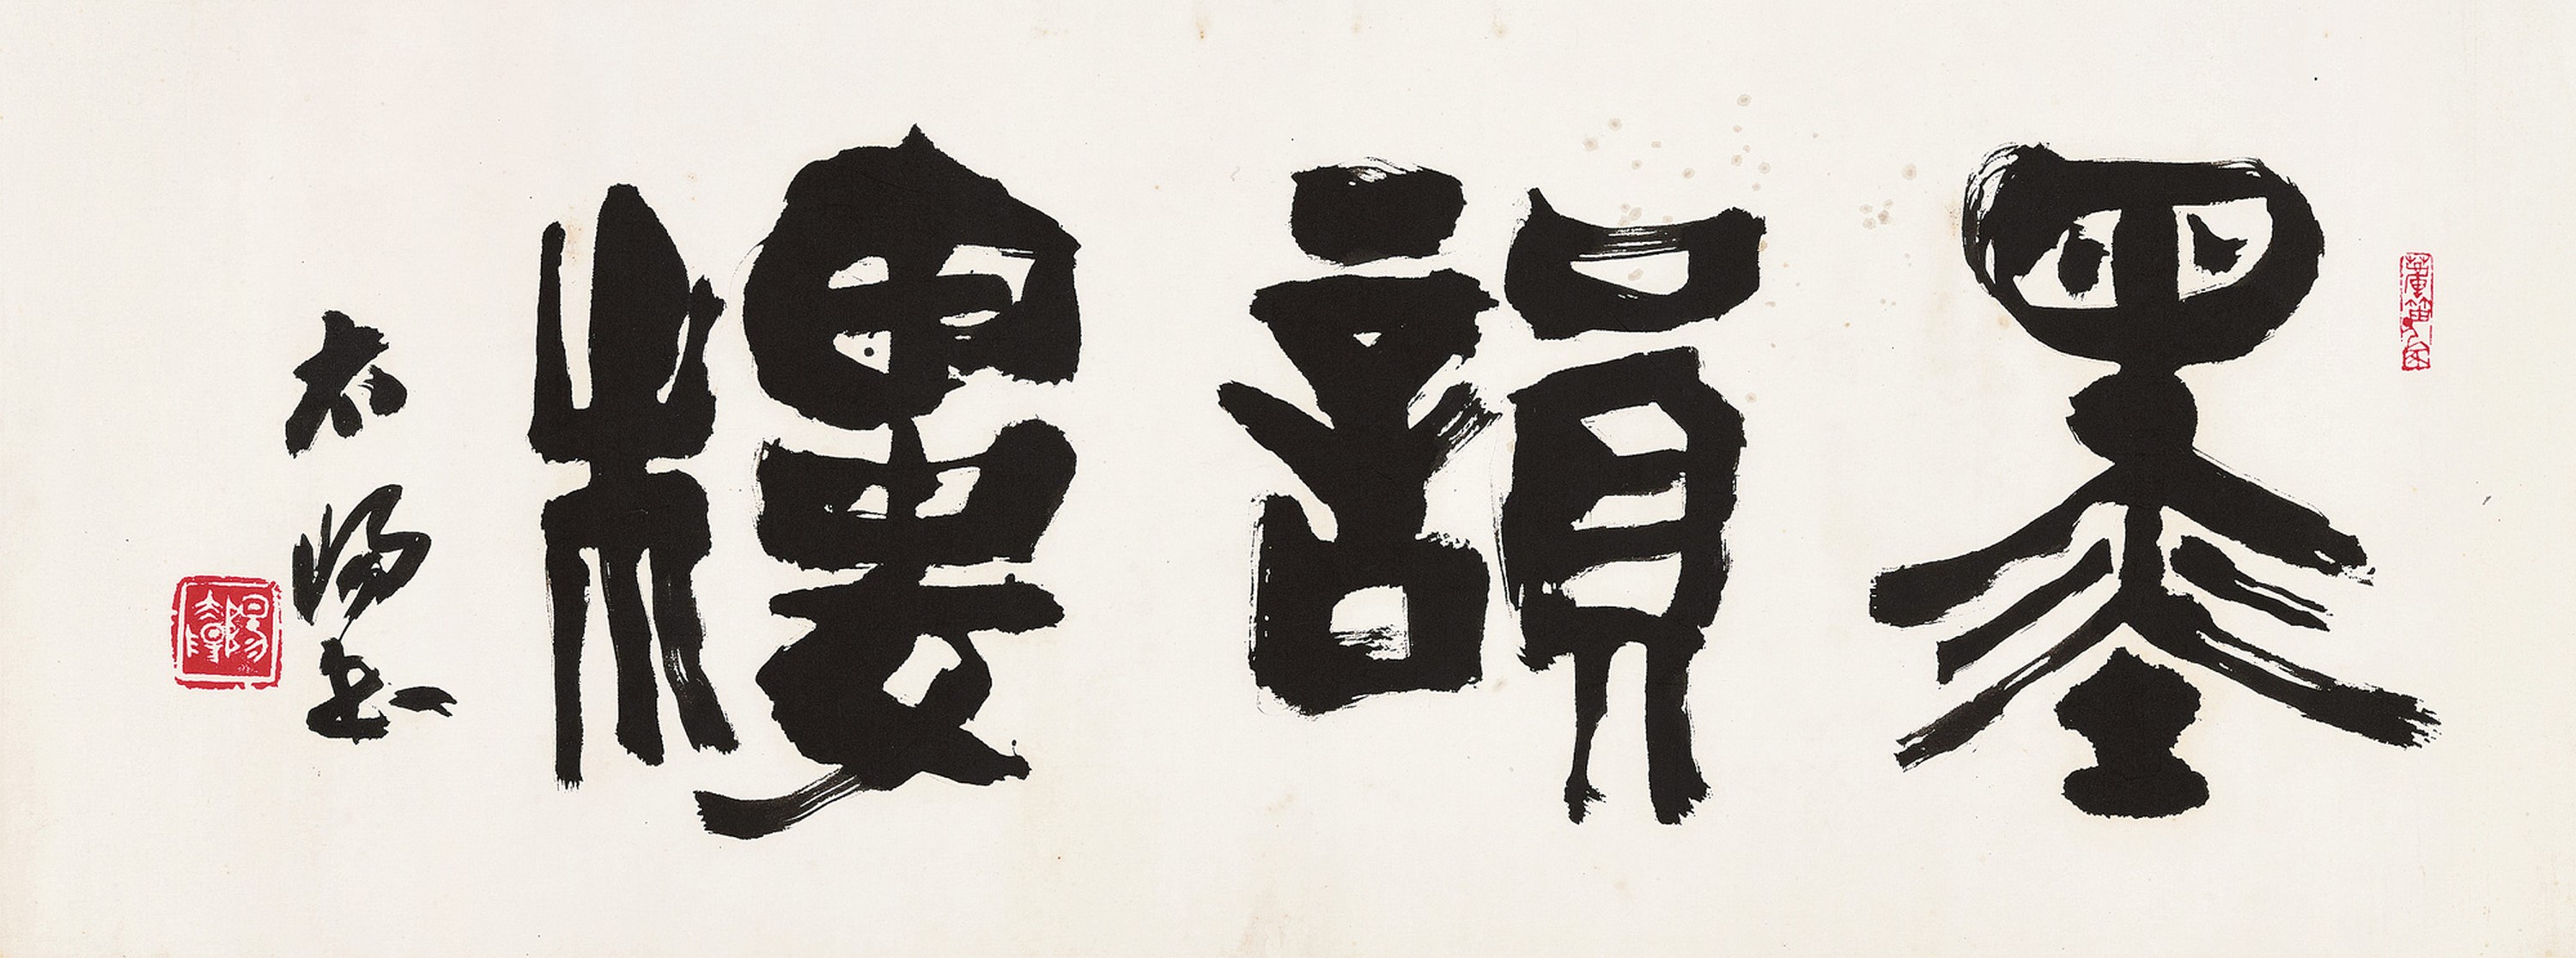 墨韻樓
太陽書